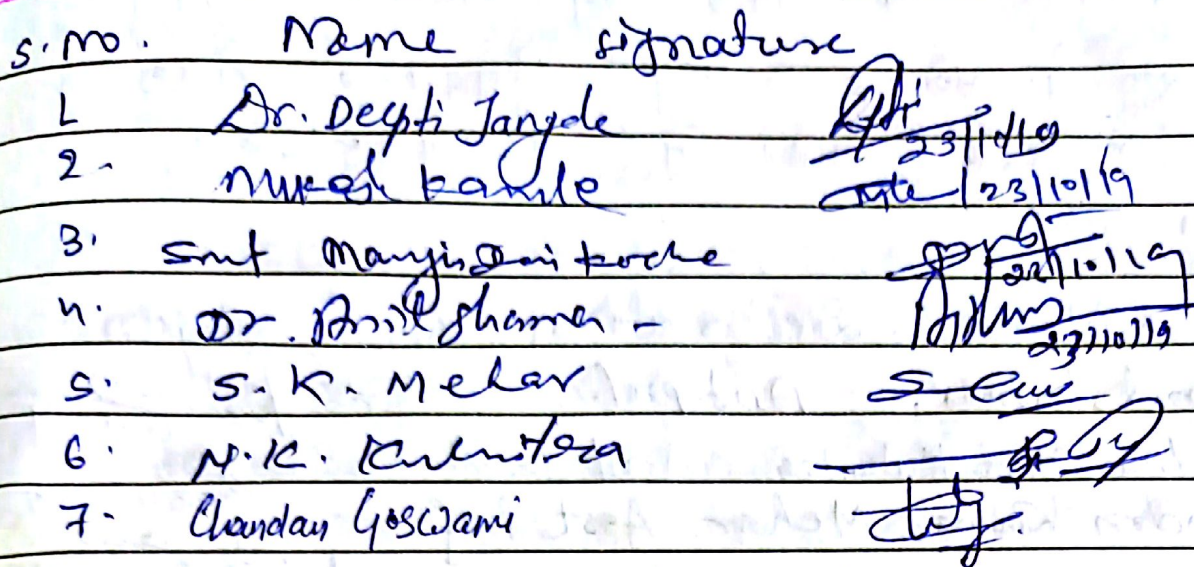 S. No. Name signature
1 Dr. Deepti Jangde 23/10/19
2 - Mukesh Kamle 23/10/19
3. Smt 22/10/19
4. Dr. Anil Sharma - 23/10/19
5. S. K. Mehar
6. N. K. Kulmitra
7- Chandan Goswami